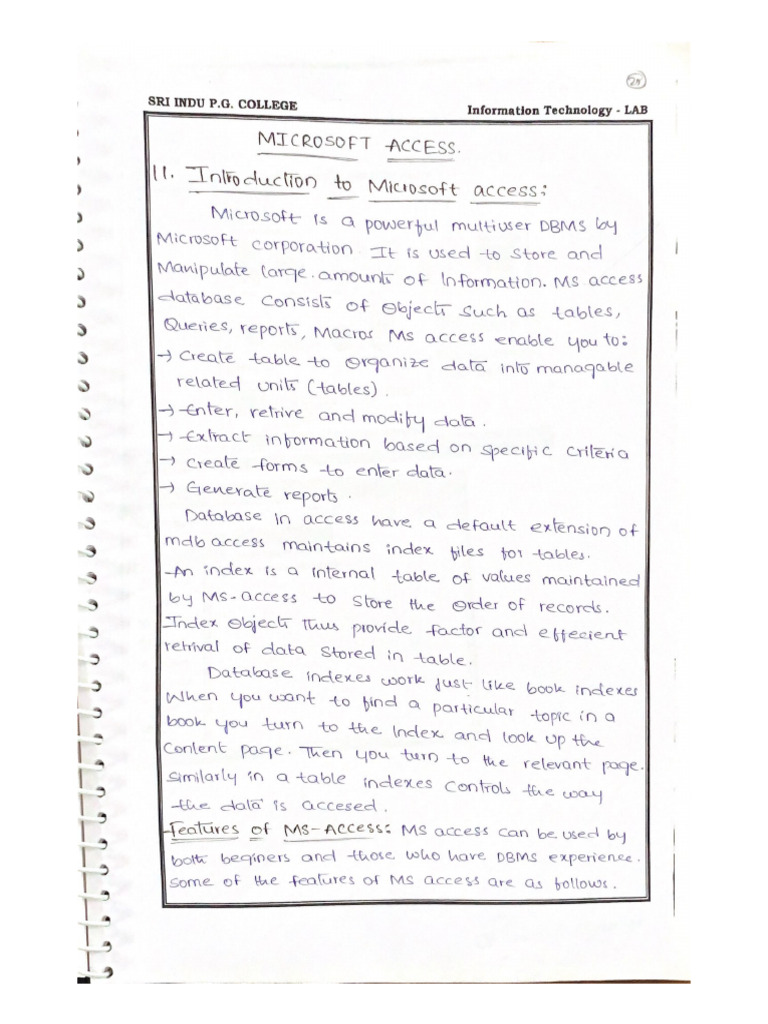 25
SRI INDU P.G. COLLEGE
Information Technology - LAB
MICROSOFT ACCESS.
11. Introduction to Microsoft access:
Microsoft is a powerful multiuser DBMS by
Microsoft corporation. It is used to store and
Manipulate large amounts of Information. MS access
database consists of Objects such as tables,
Queries, reports, Macros Ms access enable you to:
→ Create table to organize data into managable
related units (tables).
→ Enter, retrive and modify data.
→ Extract information based on specific criteria
→ Create forms to enter data.
→ Generate reports.
Database in access have a default extension of
mdb access maintains index files for tables.
An index is a internal table of values maintained
by MS-access to store the order of records.
Index Object thus provide factor and effecient
retrival of data stored in table.
Database indexes work just like book indexes
When you want to find a particular topic in a
book you turn to the Index and look up the
Content page. Then you turn to the relevant page.
Similarly in a table indexes controls the way
the data is accesed.
Features of MS-Access: MS access can be used by
both beginers and those who have DBMS experience.
Some of the features of MS access are as follows.